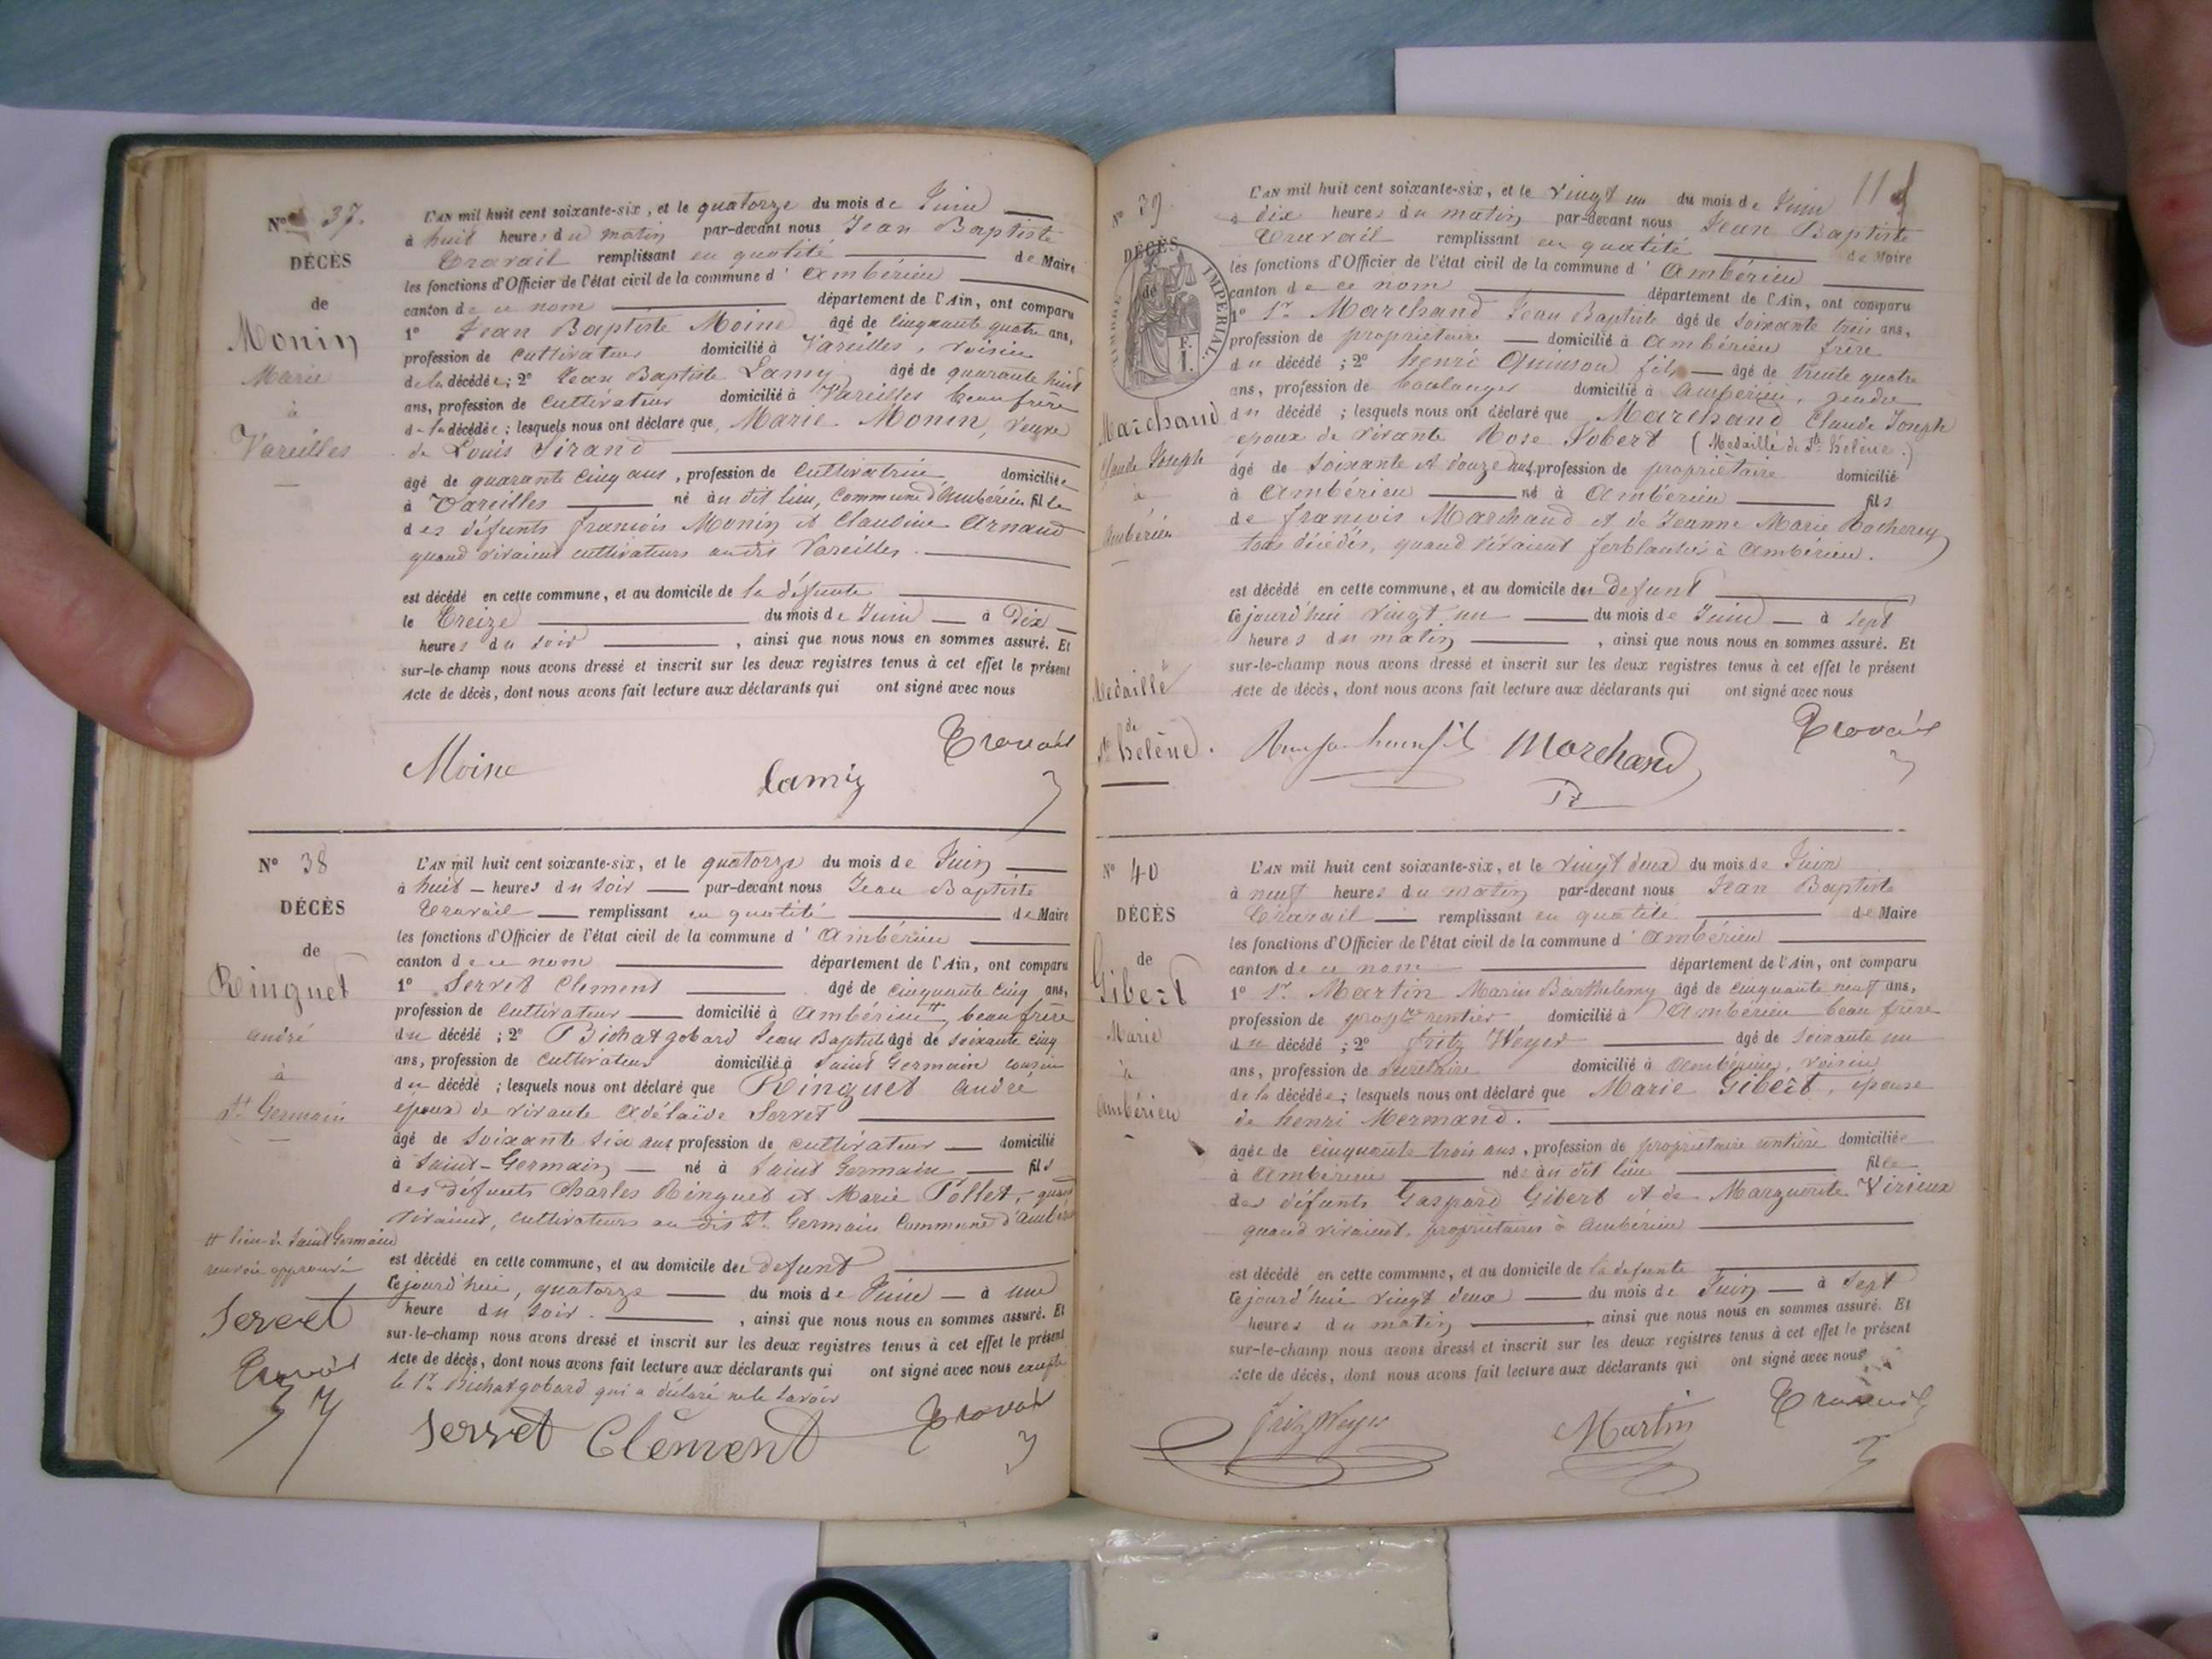 N° 37.
DÉCÈS
de
Monin
Marie
à
Vareilles
L'AN mil huit cent soixante-six, et le quatorze du mois de Juin
à huit heures du matin par-devant nous Jean Baptiste
Travail remplissant en qualité de Maire
les fonctions d'Officier de l'état civil de la commune d'Ambérieu
canton de ce nom département de l'Ain, ont comparu
1° Jean Baptiste Moine âgé de cinquante quatre ans,
profession de cultivateur domicilié à Vareilles, voisin
de la décédée; 2° Jean Baptiste Lamy âgé de quarante huit
ans, profession de cultivateur domicilié à Vareilles beau frère
de la décédée; lesquels nous ont déclaré que Marie Monin, veuve
de Louis Sirand
âgé de quarante cinq ans, profession de cultivatrice domiciliée
à Vareilles né au dit lieu, commune d'Ambérieu fille
des défunts françois Monin et Claudine Arnaud
quand vivaient cultivateurs audit Vareilles.
est décédé en cette commune, et au domicile de la défunte
le Treize du mois de Juin à Dix
heures du soir, ainsi que nous nous en sommes assuré. Et
sur-le-champ nous avons dressé et inscrit sur les deux registres tenus à cet effet le présent
Acte de décès, dont nous avons fait lecture aux déclarants qui ont signé avec nous
Moine lamy Travail
N° 38
DÉCÈS
de
Ringuet
andré
à
St Germain
L'AN mil huit cent soixante-six, et le quatorze du mois de Juin
à huit heures du soir par-devant nous Jean Baptiste
Travail remplissant en qualité de Maire
les fonctions d'Officier de l'état civil de la commune d'Ambérieu
canton de ce nom département de l'Ain, ont comparu
1° Servet Clement âgé de cinquante cinq ans,
profession de cultivateur domicilié à Ambérieu # beau frère
du décédé; 2° Bichatgobard Jean Baptiste âgé de soixante cinq
ans, profession de cultivateur domicilié à Saint Germain cousin
du décédé; lesquels nous ont déclaré que Ringuet andré
époux de vivante adélaïde Servet
âgé de soixante six ans profession de cultivateur domicilié
à Saint-Germain né à Saint Germain fils
des défunts Charles Ringuet et Marie Pollet, quand
vivaient, cultivateurs au dit St Germain Commune d'Ambérieu
# lieu de Saint Germain
renvoi approuvé
Servet
Travail
est décédé en cette commune, et au domicile du defunt
Cejourd'hui, quatorze du mois de Juin à une
heure du soir, ainsi que nous nous en sommes assuré. Et
sur-le-champ nous avons dressé et inscrit sur les deux registres tenus à cet effet le présent
Acte de décès, dont nous avons fait lecture aux déclarants qui ont signé avec nous excepté
le Sr. Bichatgobard qui a déclaré ne le savoir
Servet Clément Travail
N° 39.
DÉCÈS
de
TIMBRE IMPERIAL.
F.
1.
Marchand
Claude Joseph
à
Ambérieu
Medaillé
de
Ste helène.
L'AN mil huit cent soixante-six, et le vingt un du mois de Juin 11
à dix heures du matin par-devant nous Jean Baptiste
Travail remplissant en qualité de Maire
les fonctions d'Officier de l'état civil de la commune d'Ambérieu
canton de ce nom département de l'Ain, ont comparu
1° Sr. Marchand Jean Baptiste âgé de soixante trois ans,
profession de propriétaire domicilié à Ambérieu frère
du décédé; 2° henri Quinson fils âgé de trente quatre
ans, profession de boulanger domicilié à Ambérieu, gendre
du décédé; lesquels nous ont déclaré que Marchand Claude Joseph
époux de vivante Rose Jobert (Medaillé de Ste helène.)
âgé de soixante et douze ans, profession de propriétaire domicilié
à Ambérieu né à Ambérieu fils
de françois Marchand et de Jeanne Marie
tous décédés, quand vivaient ferblantiers à Ambérieu.
est décédé en cette commune, et au domicile du defunt
Cejourd'hui vingt un du mois de Juin à sept
heures du matin, ainsi que nous nous en sommes assuré. Et
sur-le-champ nous avons dressé et inscrit sur les deux registres tenus à cet effet le présent
Acte de décès, dont nous avons fait lecture aux déclarants qui ont signé avec nous
Marchand Travail
N° 40
DÉCÈS
de
Gibert
Marie
à
Ambérieu
L'AN mil huit cent soixante-six, et le vingt deux du mois de Juin
à neuf heures du matin par-devant nous Jean Baptiste
Travail remplissant en qualité de Maire
les fonctions d'Officier de l'état civil de la commune d'Ambérieu
canton de ce nom département de l'Ain, ont comparu
1° Sr. Martin Marin Barthelemy âgé de cinquante neuf ans,
profession de propre rentier domicilié à Ambérieu beau frère
du décédé; 2° fritz Weyer âgé de soixante un
ans, profession de secrétaire domicilié à Ambérieu, voisin
de la décédée; lesquels nous ont déclaré que Marie Gibert, épouse
de henri Mermand.
âgée de cinquante trois ans, profession de propriétaire rentière domiciliée
à Ambérieu née au dit lieu fille
des défunts Gaspard Gibert et de Marguerite Virieux
quand vivaient, propriétaires à Ambérieu
est décédé en cette commune, et au domicile de la defunte
Cejourd'hui vingt deux du mois de Juin à sept
heures du matin ainsi que nous nous en sommes assuré. Et
sur-le-champ nous avons dressé et inscrit sur les deux registres tenus à cet effet le présent
Acte de décès, dont nous avons fait lecture aux déclarants qui ont signé avec nous
fritz Weyer Martin Travail